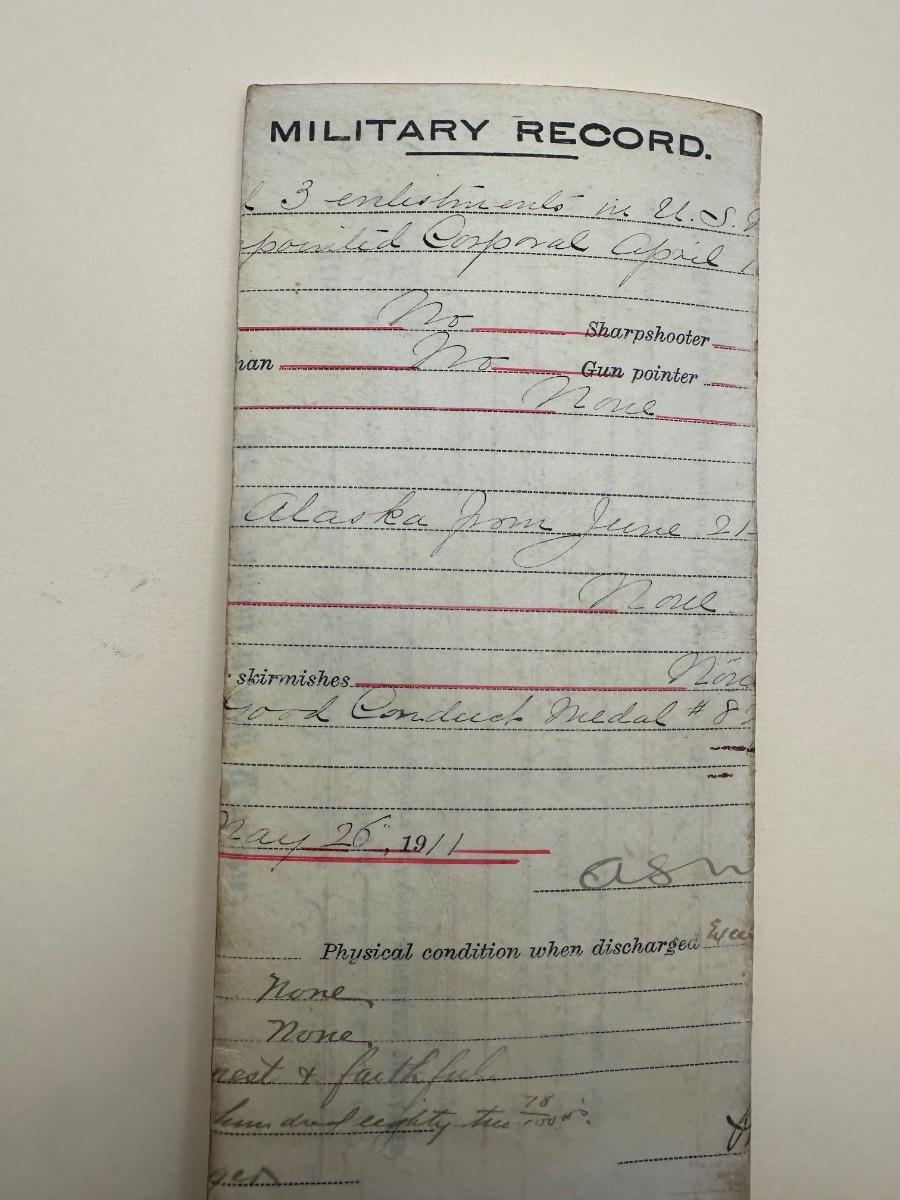 MILITARY RECORD.
3 enlistments in U.S.
pointed Corporal April 1
No Sharpshooter
man No Gun pointer
None
Alaska from June 21-
None
skirmishes None
Good Conduct Medal # 8
May 26, 1911
Physical condition when discharged
None
None
nest & faithful.
hundred eighty two 78/100